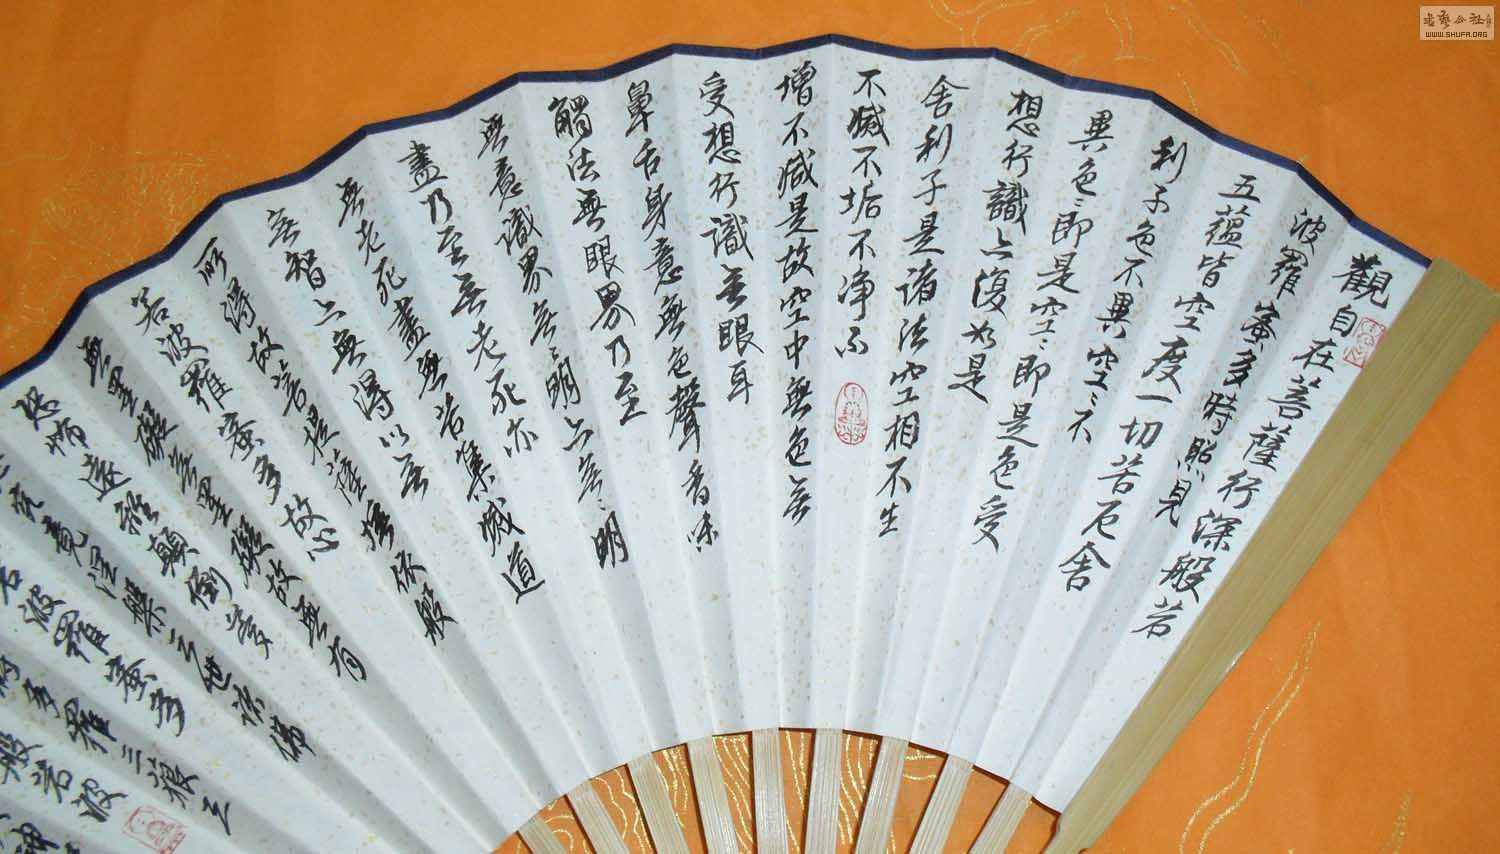 觀自在菩薩行深般若
波羅蜜多時照見
五蘊皆空度一切苦厄舍
利子色不異空〻不
異色〻即是空〻即是色受
想行識亦復如是
舍利子是諸法空相不生
不滅不垢不淨不
增不減是故空中無色無
受想行識無眼耳
鼻舌身意無色聲香味
觸法無眼界乃至
無意識界無〻明亦無〻明
盡乃至無老死亦
無老死盡無苦集滅道
無智亦無得以無
所得故菩提薩埵依般
若波羅蜜多故心
無罣礙無罣礙故無有
恐怖遠離顛倒夢
究竟涅槃三世諸佛
若波羅蜜多
耨多羅三藐三
般若波
神
書藝公社
WWW.SHUFA.ORG